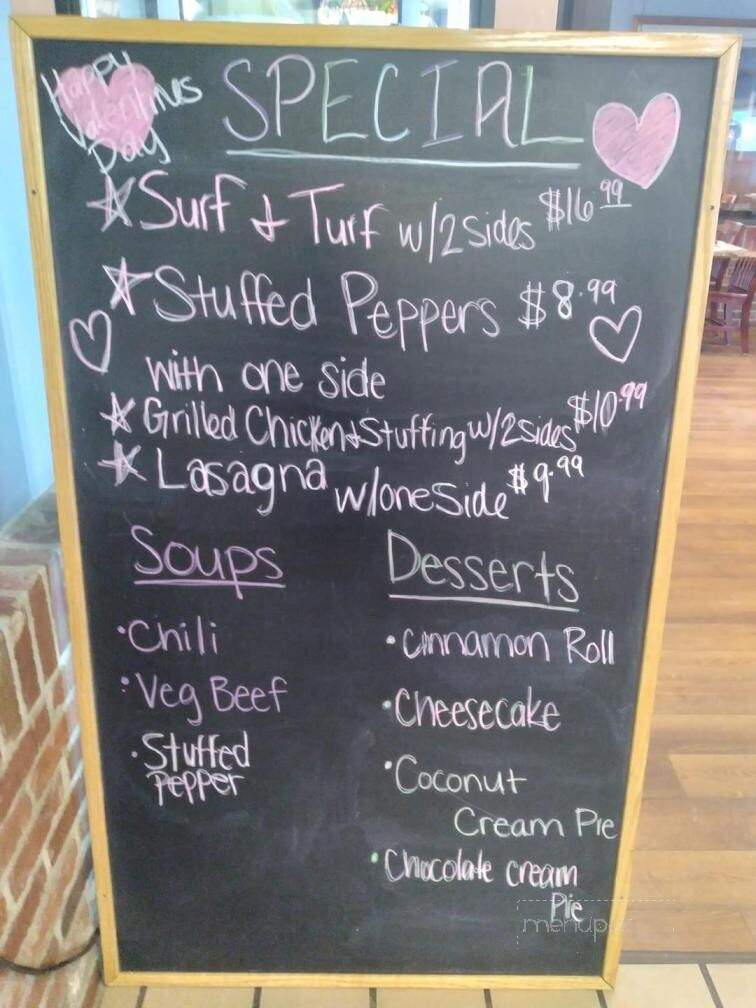 Happy
Valentines
Day
SPECIAL
Surf & Turf w/2 sides $16.99
Stuffed Peppers $8.99
with one side
Grilled Chicken & Stuffing w/2 sides $10.99
Lasagna w/one side $9.99
Soups
• Chili
• Veg Beef
• Stuffed
Pepper
Desserts
• Cinnamon Roll
• Cheesecake
• Coconut
Cream Pie
• Chocolate cream
Pie